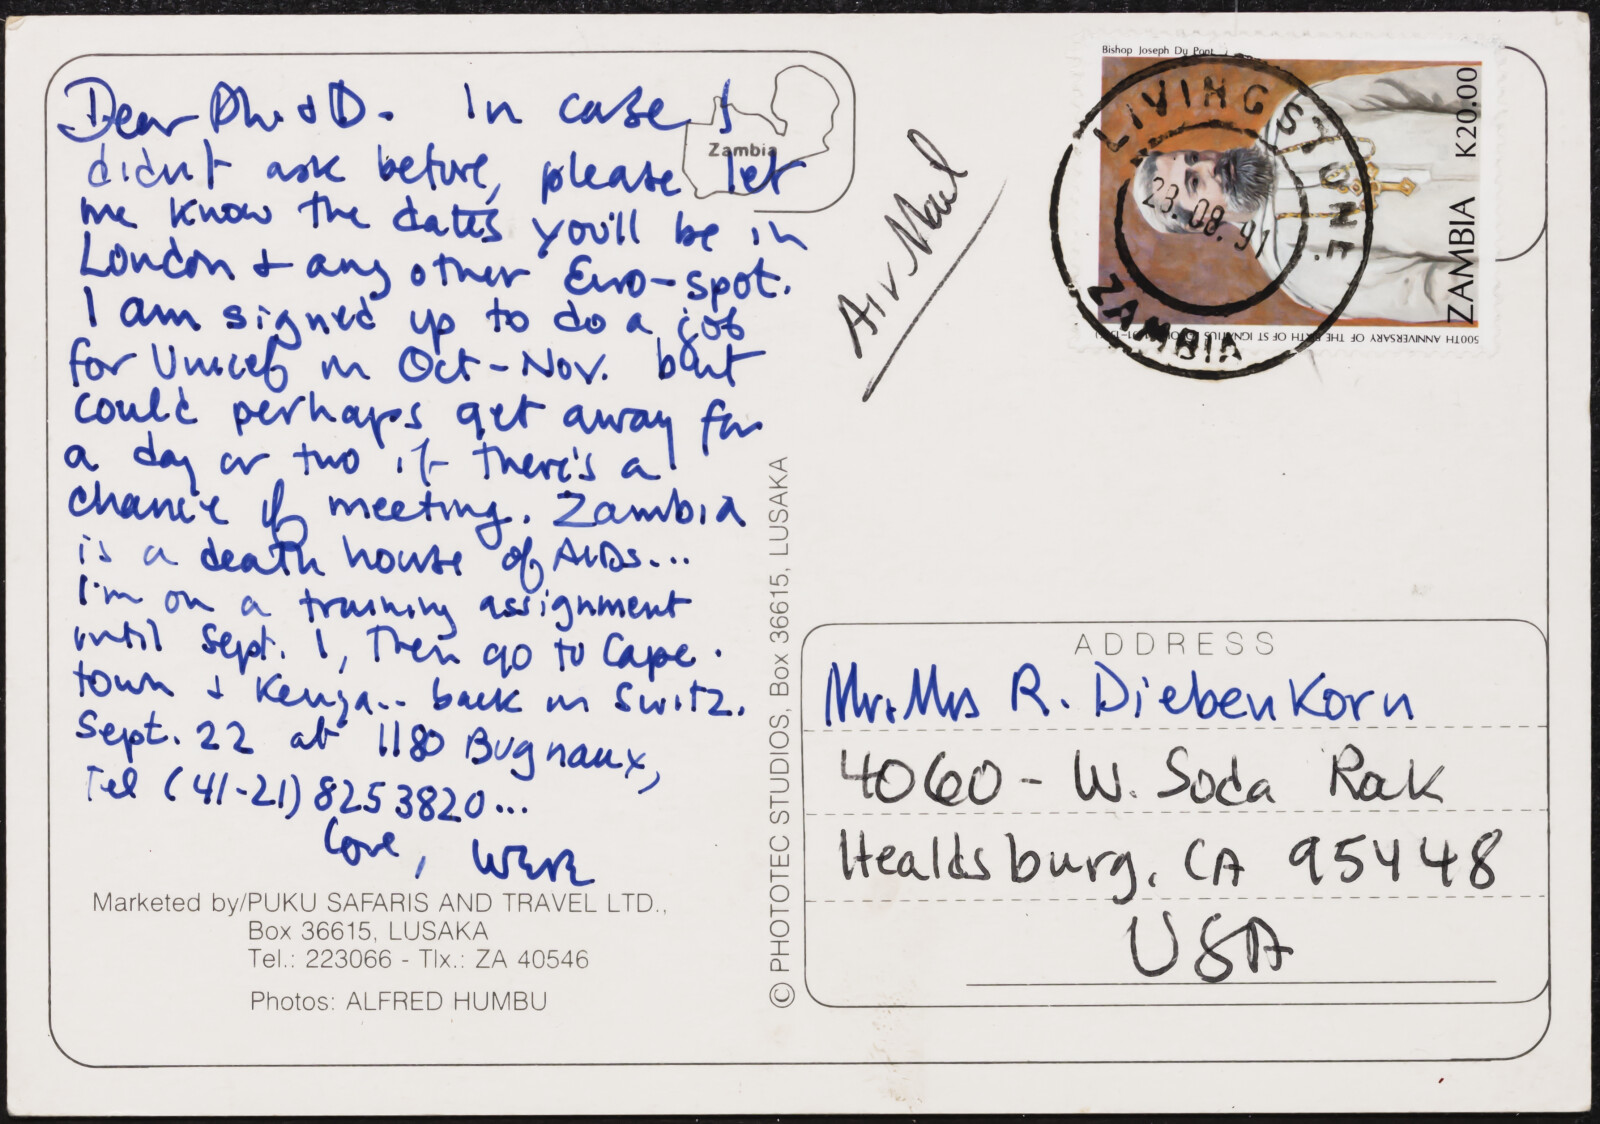 Dear Phi & D. In case I
didn't ask before, please let
me know the dates you'll be in
London & any other Euro-spot.
I am signed up to do a job
for Unicef in Oct-Nov. but
could perhaps get away for
a day or two if there's a
chance of meeting. Zambia
is a death house of AIDs...
I'm on a training assignment
until Sept. 1, then go to Cape.
town & Kenya.. back in Switz.
Sept. 22 at 1180 Bugnaux,
Tel (41-21) 825 3820...
Love,
Zambia
Marketed by/PUKU SAFARIS AND TRAVEL LTD.,
Box 36615, LUSAKA
Tel.: 223066 - Tlx.: ZA 40546
Photos: ALFRED HUMBU
© PHOTOTEC STUDIOS, Box 36615, LUSAKA
Air Mail
Bishop Joseph Du Pont
ZAMBIA K20.00
500TH ANNIVERSARY OF THE BIRTH OF ST IGNATIUS
LIVINGSTONE.
23.08.91
ZAMBIA
ADDRESS
Mr. Mrs R. DiebenKorn
4060 - W. Soda Rok
Healdsburg, CA 95448
USA